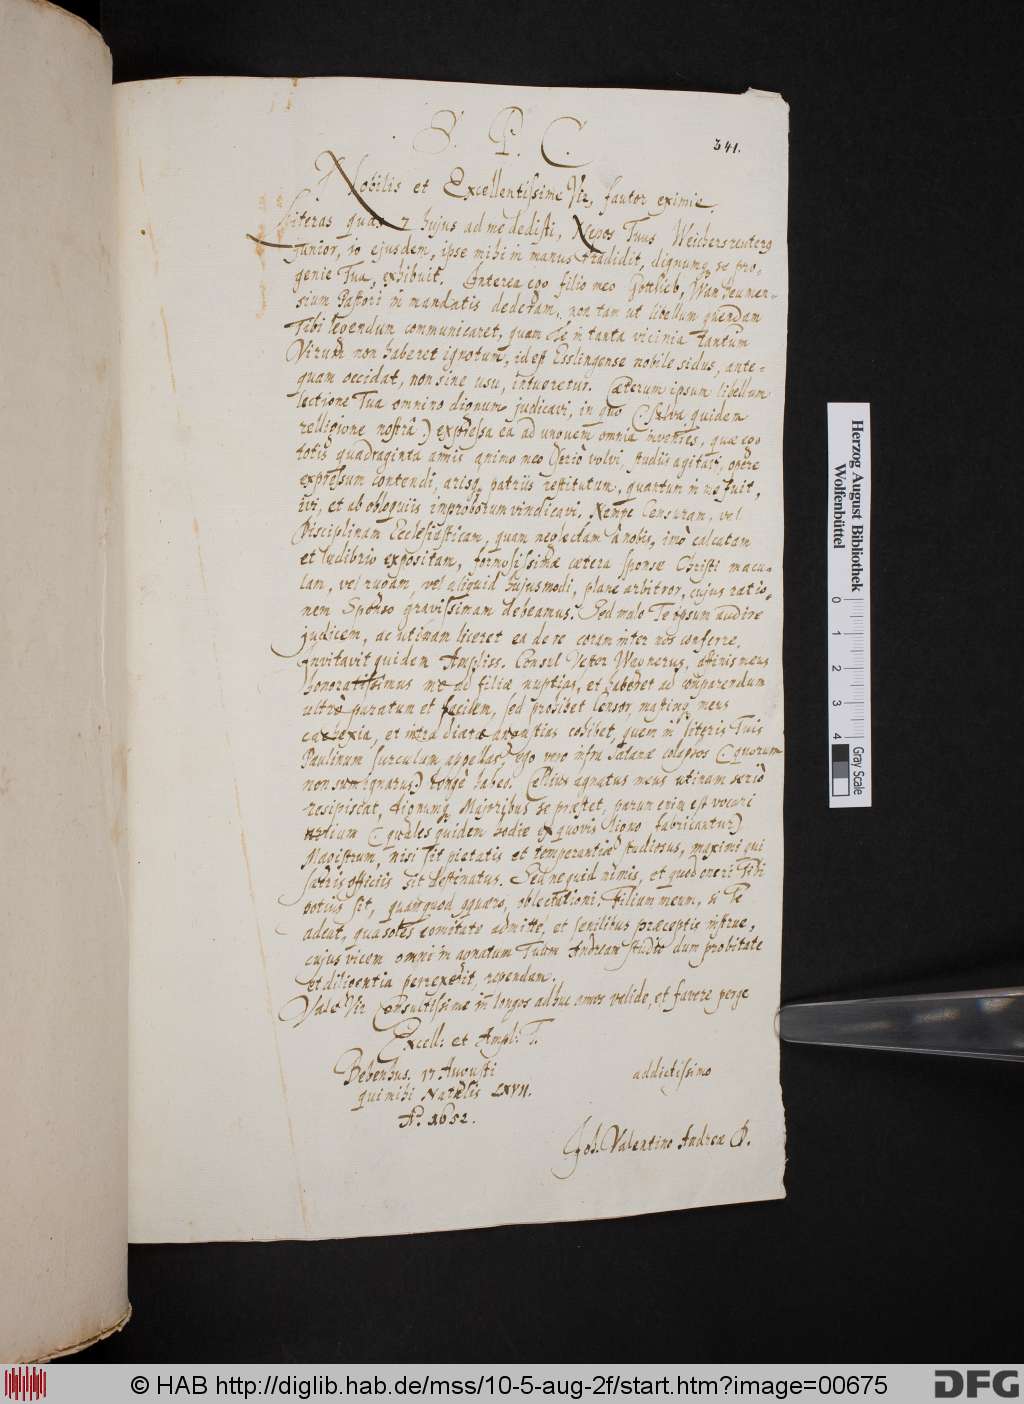 S. P. C.
341.
Nobilis et Excellentissime Vir, fautor eximie.
Literas quas 7 hujus ad me dedisti, Nepos Tuus Weickersreuterg
Junior, 10 ejusdem, ipse mihi in manus tradidit, dignumq se pro-
genie Tua, exhibuit. Interea ego filio meo Gottlieb,
sium Pastori in mandatis dederam, non tam ut libellum quendam
Tibi legendum communicaret, quam Se in tanta vicinia tantum
Virum non haberet ignotum, id est Esslingense nobile sidus, ante-
quam occidat, non sine usu, intueretur. Cæterum ipsum libellum
lectione Tua omnino dignum judicavi, in quo (salva quidem
relligione nostrâ) expressa ea ad unguem omnia invenies, quæ ego
totis quadraginta annis animo meo seriò volvi, studiis agitavi, opere
expressum contendi, arisq patriis restitutum, quantum in me fuit,
ivi, et ab obloquiis improborum vindicavi. Nempe Censuram, vel
Disciplinam Ecclesiasticam, quam neglectam à nobis, imò calcatam
et ludibrio expositam, formosissimæ cætera sponsæ Christi macu-
lam, vel rugam, vel aliquid hujusmodi, plane arbitror, cujus ratio-
nem Sponso gravissimam debeamus. Sed malo Te ipsum audire
judicem, ac utinam liceret ea de re coram inter nos conferre.
Invitavit quidem Ampliss. Consul Veter Wagnerus, affinis meus
honoratissimus me ad filiæ nuptias, et haberet ad comparendum
ultrò paratum et facilem, sed prohibet censor, mastinq meus
cachexia, et intra diætæ angustias cohibet, quem in literis Tuis
Paulinum surculum appellas, ego vero infra Satanæ colaphos (quorum
non sum ignarus) longè habeo. Cellius agnatus meus utinam seriò
resipiscat, dignumq Majoribus se præstet, parum enim est vocari
artium (quales quidem hodie ex quovis ligno fabricantur)
Magistrum, nisi sit pietatis et temperantiæ studiosus, maximè qui
sacris officiis sit destinatus. Sed nequid nimis, et quod oneri Tibi
potius sit, quam quod quæro, oblectationi. Filium meum, si Te
adeat, qua soles comitate admitte, et senilibus præceptis instrue,
cujus vicem omni in agnatum Tuum Andream studio dum probitate
et diligentia perrexerit, rependam.
Vale Vir Consultissime in longos adhuc annos valide, et favere perge
Excell: et Ampl: T.
Bebenhus. 17 Augusti
addictissimo
qui mihi Natalis LXVII.
Aº. 1652.
Joh. Valentino Andreæ D.
Herzog August Bibliothek
Wolfenbüttel
0 1 2 3 4
Gray Scale
© HAB http://diglib.hab.de/mss/10-5-aug-2f/start.htm?image=00675
DFG